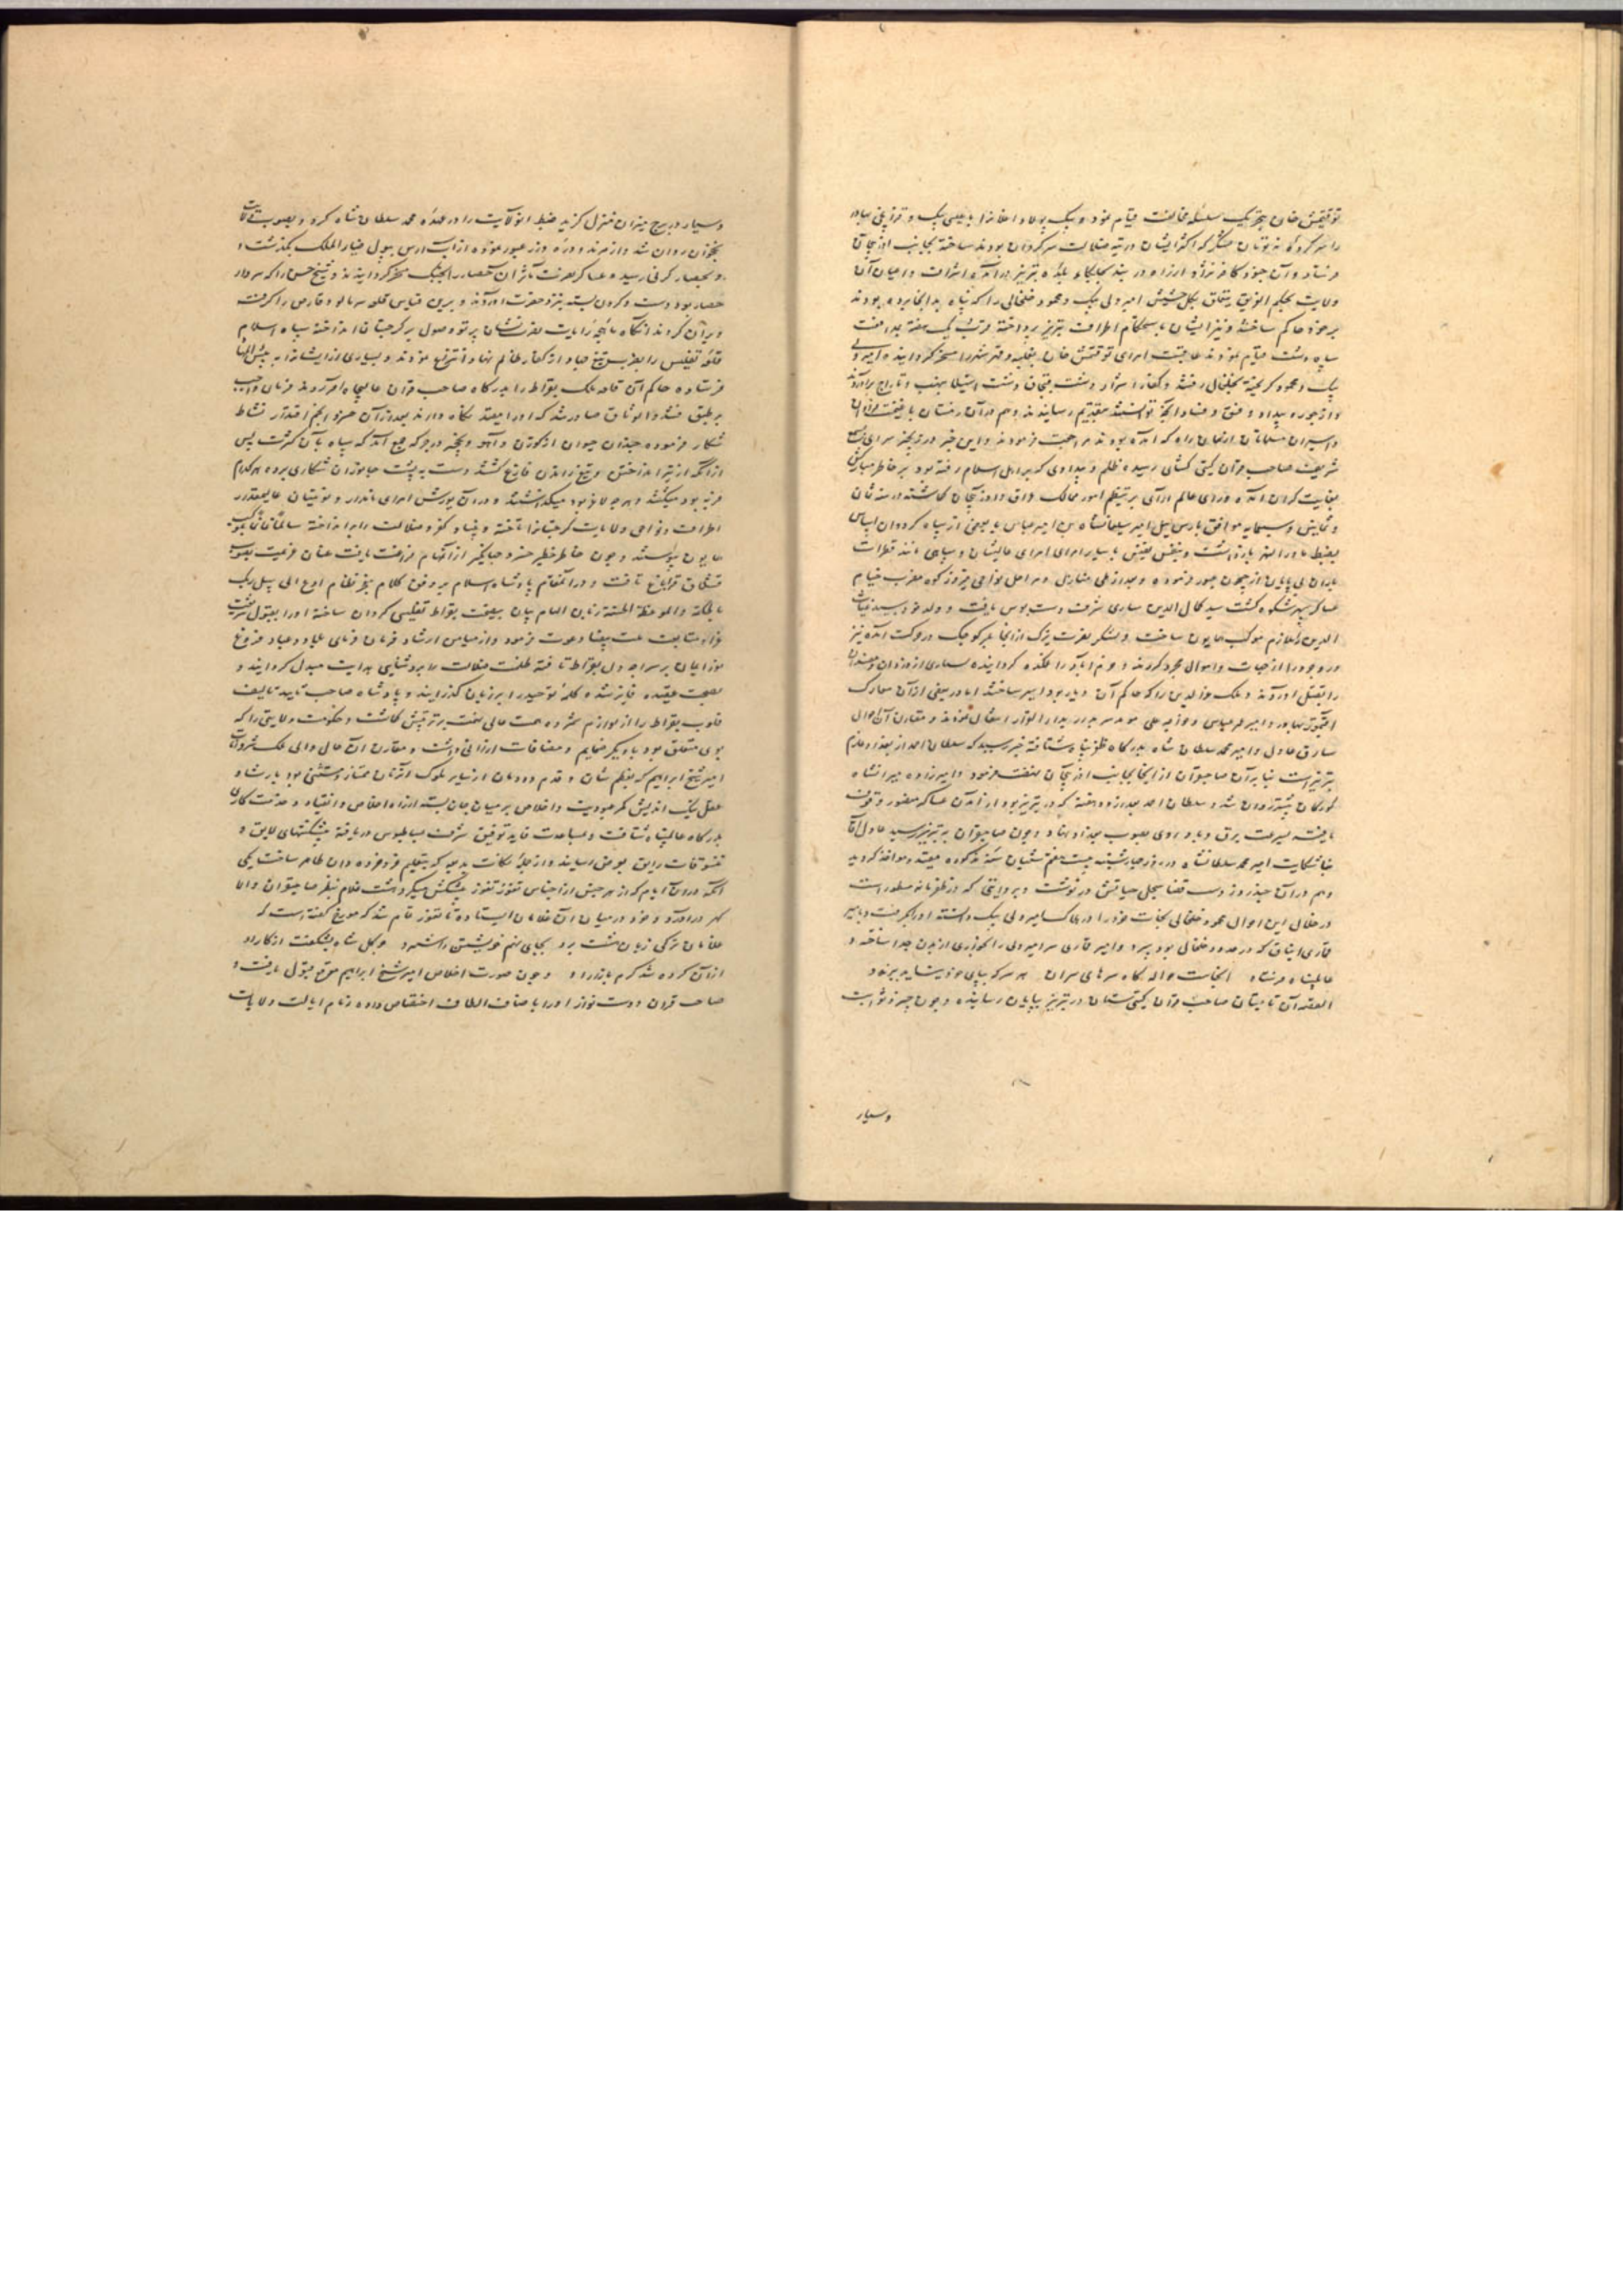 توقتمش خان بتحریک سلسله مخالفت قیام نمود و بیک پولاد و اغلانرا با عیسی بیک و
را سرکرده نه تومان لشکر که اکثر ایشان در تیه ضلالت سرکردان بودند ساخته بجانب اذربیجان
فرستاد و آن جنود کافر از راه در بند به تبریز در آمده اشراف و اعیان آن
ولایت بحکم امیر ولی بیک و محمود خلخالی را که پناه بدانجا برده بودند
بر خود حاکم ساختند و نیز ایشان باستحکام اطراف تبریز پرداخته قرب یک هفته بمدافعت
سپاه دشت قیام نمودند عاقبت امرای توقتمش خان بغلبه و قهر شهر را مسخر کردانیده امیر ولی
بیک و محمود کریخته بخلخال رفتند و کفار اشرار دشت قبچاق دست استیلا بنهب و تاراج برآوردند
و از جور و بیداد و فسق و فساد آنچه توانستند بتقدیم رسانیدند و هم در آن زمستان با
و اسیران مسلمانان از همان راه که آمده بودند مراجعت فرمودند و این خبر در
شریف صاحب قران کیتی کشای رسیده ظلم و بیدادی که بر اهل اسلام رفته بود بر خاطر مبارکش
بغایت کران آمده و رای عالم آرای بر تنظیم امور ممالک عراق و اذربیجان کماشته در سنه ثمان
و ثمانین و سبعمایه موافق بارس ییل امیر سلیمانشاه بن امیر عباس با بعضی از سپاه
بضبط ماورا النهر باز داشت و بنفس نفیس با سایر امرای عالیشان و سپاهی مانند قطرات
باران بی پایان از جیحون عبور فرموده و بعد از طی منازل و مراحل نواحی فیروز کوه مضرب خیام
عساکر سپهر شکوه کشت سید کمال الدین ساری شرف دست بوس یافت و ولد خود سید غیاث
الدین را ملازم موکب همایون ساخت و لشکر نصرت یزک از انجا بلر کوچک در حرکت آمده نیز
را بقتل آوردند و ملک عز الدین را که حاکم آن دیار بود اسیر ساختند اما در بعضی از آن معارک
اقتمور بهادر و امیر عمر عباسی و خواجه علی موید سر بدار بدار القرار انتقال نمودند و مقارن آن احوال
سارق عادل و امیر محمد سلطان شاه بدرگاه ظفر پناه شتافته خبر رسید که سلطان احمد از بغداد عازم
تبریز است بنا برآن صاحبقران از انجا بجانب اذربیجان نهضت فرمود و امیرزاده میرانشاه
کورکان پیشتر روان شد و سلطان احمد بعد از دو هفته که در تبریز بود از آمدن عساکر منصور وقوف
یافته بسرعت برق و باد روی بصوب بغداد نهاد و چون صاحبقران به تبریز رسید عادل آقا
بنا شکایت امیر محمد سلطانشاه در روز چهارشنبه بیست هفتم شعبان سنه مذکوره مقید و مواخذ کردید
و هم در آن چند روز دست قضا سجل حیاتش در نوشت و بروایتی که در ظفرنامه مسطور است
در خلال این احوال محمود خلخالی نجات خود را در هلاک امیر ولی بیک دانسته او را بکرفت و بامیر
قاری ایناق که در حدود خلخال بود سپرد و امیر قاری سر امیر ولی را بخواری از بدن جدا ساخته و
عالمپناه فرستاد انجاست حواله کاه سرهای سران هر سر که بپای خود نیاید ببرند
القصه آن تابستان صاحب قران کیتی ستان در تبریز بپایان رسانیده و چون خسرو ثوابت
وسیار
وسیار در برج میزان منزل کزید ضبط انولایت را در عهده محمد سلطان شاه کرد و بصوب
نخجوان روان شد و از مرند و دره دوز عبور نموده از آب ارس بپول ضیا الملک بکذشت و
و بحصار کرنی رسیده عساکر نصرت مآثر آن حصار را بجنک مسخر کردانیدند و شیخ حسن را که سردار
حصار بود دست و کردن بسته بنزد حضرت آوردند و برین قیاس قلعه سرمالو و قارص را کرفته
ویران کردند آنکاه ماهچه رایات نصرت نشان پرتو وصول بر کرجستان انداخته سپاه اسلام
قلعه تفلیس را بضرب تیغ جهاد از کفار ظالم نهاد انتزاع نمودند و بسیاری از ایشانرا به
فرستاده حاکم آن قلعه ملک بقراط را بدرکاه صاحب قران عالیجاه آوردند فرمان
بر طبق فشدوا الوثاق صادر شد که او را مقید نکاه دارند بعد از آن خسرو انجم اقتدار نشاط
شکار فرموده چندان حیوان از کوزن و آهو و نخجیر در جرکه جمع آمد که سپاه بآن کثرت پس
از آنکه از تیر انداختن و تیغ راندن فارغ کشتند دست به پشت جانوران شکاری برده هر کدام
فربه بود میکشتند و هرچه لاغر بود میکذاشتند و در آن یورش امرای نامدار و نوئینان عالیمقدار
اطراف و نواحی ولایات کرجستانرا تاخته و بنیاد کفر و ضلالت را برانداخته سالما غانما بموکب
همایون پیوستند و چون خاطر خطیر خسرو جهانکیر از آن مهام فراغت یافت عنان عزیمت بصوب
قشلاق قراباغ تافت و در آن مقام پادشاه اسلام بر وفق کلام معجز نظام ادع الی سبیل ربک
بالحکمة والموعظة الحسنة زبان الهام بیان بنصیحت بقراط تفلیسی کردان ساخته او را بقبول
متابعت ملت بیضا دعوت فرمود و از میامن ارشاد فرمان فرمای بلاد و عباد فروغ
نور ایمان بر سراچه دل بقراط تافته ظلمت ضلالت بروشنایی هدایت مبدل کردانید و
بصحت عقیده فایز شده و کلمه توحید را بر زبان کذرانید و پادشاه صاحب تایید تالیف
قلوب بقراط را از لوازم شمرده همت عالی نهمت بر تربیتش کماشت و حکومت ولایتی را که
بوی متعلق بود با دیکر ضمایم و مضافات ارزانی داشت و مقارن آن حال والی ملک شروان
امیر شیخ ابراهیم که بعظم شان و قدم دودمان از سایر ملوک آن زمان ممتاز و مستثنی بود بارشاد
عقل نیک اندیش کمر عبودیت و اخلاص بر میان جان بسته از راه اخلاص و انقیاد و خدمت کاری
بدرکاه عالمپناه شتافت و بمساعدت قاید توفیق شرف بساطبوس دریافته پیشکشهای لایق و
تنسوقات رایق بعرض رسانید و از جمله نکات بدیعه که بتعلیم خرد خرده دان ظاهر ساخت یکی
آنکه در آن ایام که از هر جنس از اجناس تقوز تقوز پیشکش میکرد هشت غلام بنظر صاحبقران والا
کهر درآورد و خود در میان آن غلامان ایستاده تا تقوز تمام شد که مورخ کفته است که
غلامان ترکی زبان هشت برد بجای نهم خویشتن را شمرد
از آن کرده شد کرم بازار او و چون صورت اخلاص امیر شیخ ابراهیم موقع قبول یافت و
صاحب قران دوست نواز او را باصناف الطاف اختصاص داده زمام ایالت ولایات